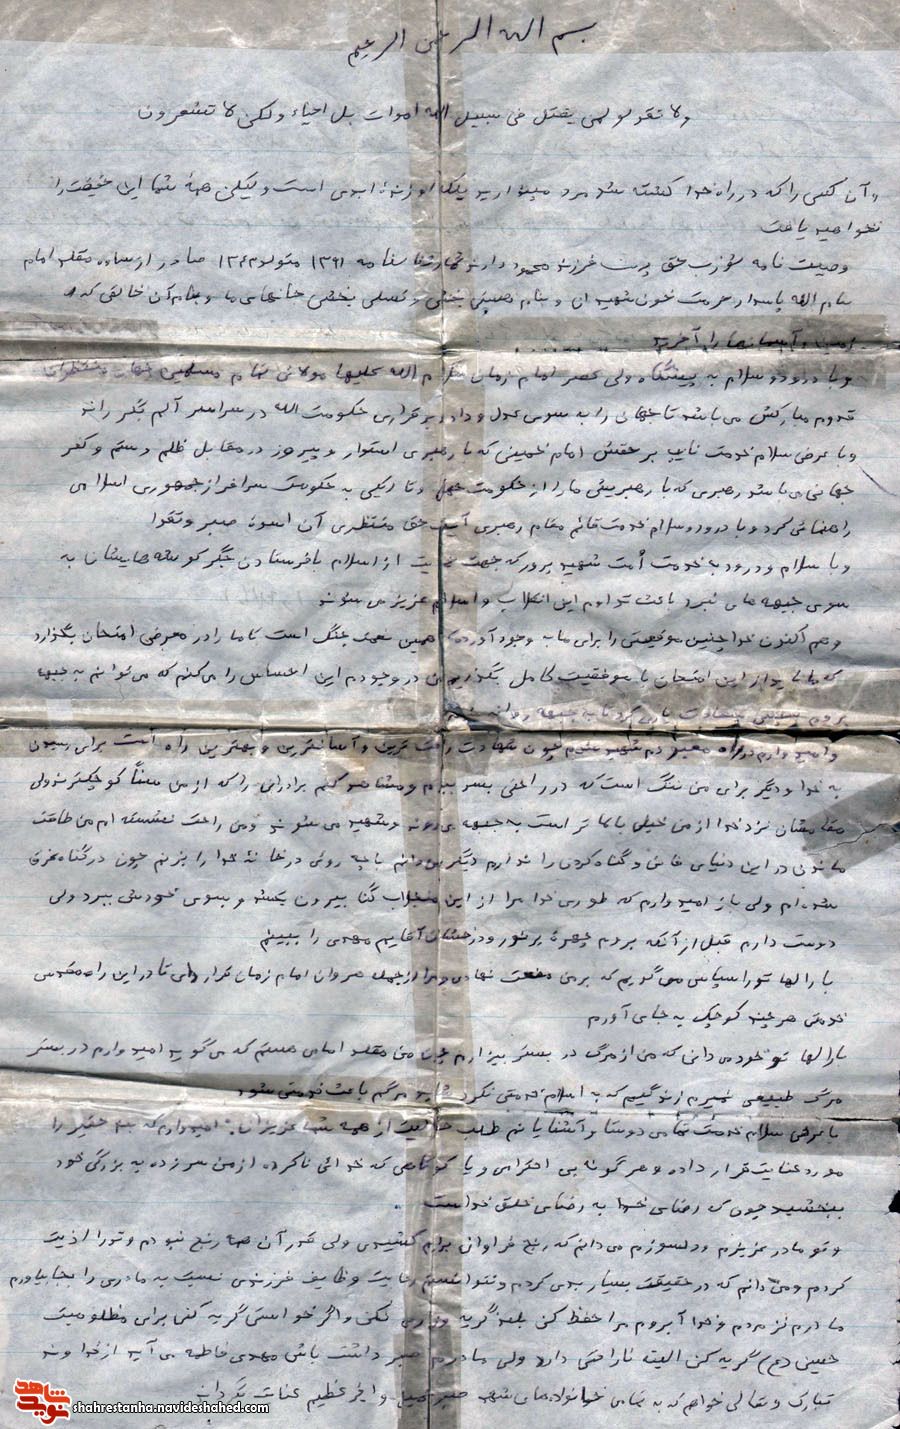 بسم الله الرحمن الرحیم
ولا تقولو لمی یقتل فی سبیل الله اموات بل احیاء ولکن لا تشعرون
و آن کسی را که در راه خدا کشته شد مرده مپندارید بلکه او زندهٔ ابدی است ولیکن همهٔ شما این حقیقت را
نخواهید یافت
وصیت نامه حق پرست فرزند محمود دارنده شماره شناسنامه ۱۳۹۱ متولد ۱۳۴۳ صادر از ساوه مقلد امام
بنام الله پاسدار حرمت خون شهیدان و بنام هستی بخش و تسلی بخش خانهای ما و بنام آن خالقی که
زمین و آسمانها را آفرید
و با درود و سلام به پیشگاه ولی عصر امام زمان سلام الله علیها مولای تمام مسلمین جهان منتظران
قدوم مبارکش می باشد تا جهانی را به سوی عدل و داد و برقراری حکومت الله در سراسر آلم بگسراند
و با عرض سلام خدمت نایب بر حقش امام خمینی که با رهبری استوار و پیروز در مقابل ظلم و ستم و کفر
جهانی می باشد رهبری که با رهبریش ما را از حکومت جهل و تاریکی به حکومت سرافراز جمهوری اسلامی
راهنمائی کرد و با درود و سلام خدمت قائم مقام رهبری آیت حق منتظری آن اسوهٔ صبر و تقوا
و با سلام و درود به خدمت اُمت شهید پرور که جهت حمایت از اسلام با فرستادن جگر گوشه هایشان به
سوی جبهه های نبرد باعث تداوم این انقلاب و اسلام عزیز می شوند
و هم اکنون خدا چنین موقعیتی را برای ما به وجود آورده که همین نعمت جنگ است تا ما را در معرض امتحان بگذارد
که ما باید از این امتحان با موفقیت کامل بگذریم من در وجودم این احساس را می‌کنم که می توانم به جبهه
بروم پس سعادت یاری کرد تا به جبهه روانه شدم
و امیدوارم در راه معبودم شهید شوم چون شهادت راحت ترین و آسانترین و بهترین راه است برای رسیدن
به خدا و دیگر برای من ننگ است که در راحتی بسر ببرم و مشاهده کنم برادرانی را که از من سنناً کوچکترند ولی
مقامشان نزد خدا از من خیلی بالا تر است به جبهه می روند و شهید می شوند و من راحت نشسته ام من طاقت
ماندن در این دنیای فانی و گناه کردن را ندارم دیگر نمی دانم با چه روئی در خانهٔ خدا را بزنم چون در گناه غرق
شده ام ولی باز امیدوارم که طوری خدا مرا از این منجلاب گنا بیرون بکشد و بسوی خودش ببرد ولی
دوست دارم قبل از آنکه بروم چهرهٔ پر نور و درخشان آقایم مهدی را ببینم
بارالها تو را سپاس می گویم که بر من منت نهادی و مرا از جمله پیروان امام زمان قرار دادی تا در این راه مقدس
خدمتی هر چند کوچک به جای آورم
بارالها تو خود می دانی که من از مرگ در بستر بیزارم چون من مقلد امامی هستم که می گوید امیدوارم در بستر
مرگ طبیعی نمیرم زندگیم که به اسلام خدمتی نکرد شاید مرگم باعث خدمتی شود
با عرض سلام خدمت تمامی دوستان و آشنایانم طلب حلالیت از همه شما عزیزان امیدوارم که بنده حقیر را
مورد عنایت قرار داده و هر گونه بی احترامی و یا کوتاهی که خدائی ناکرده از من سر زده به بزرگی خود
ببخشید چون که رضای خدا به رضای خلق خداست
و تو مادر عزیزم و دلسوزم می دانم که رنج فراوان برایم کشیدی ولی قدر آن همه رنج نبودم و تو را اذیت
کردم و می دانم که در حقیقت بسیار بدی کردم و نتوانستم رعایت وظایف فرزندی نسبت به مادری را بجا بیاورم
مادرم نزد مردم و خدا آبرویم مرا حفظ کن بلند گریه و زاری نکن و اگر خواستی گریه کنی برای مظلومیت
حسین (ع) گریه کن البته ناراحتی دارد ولی مادرم صبر داشت باش مهدی فاطمه می آید از خداوند
تبارک و تعالی خواهم که به تمامی خانوادهای شهدا صبر جمیل و اجر عظیم عنایت گرداند
شاهد
نوید
shahrestanha.navideshahed.com